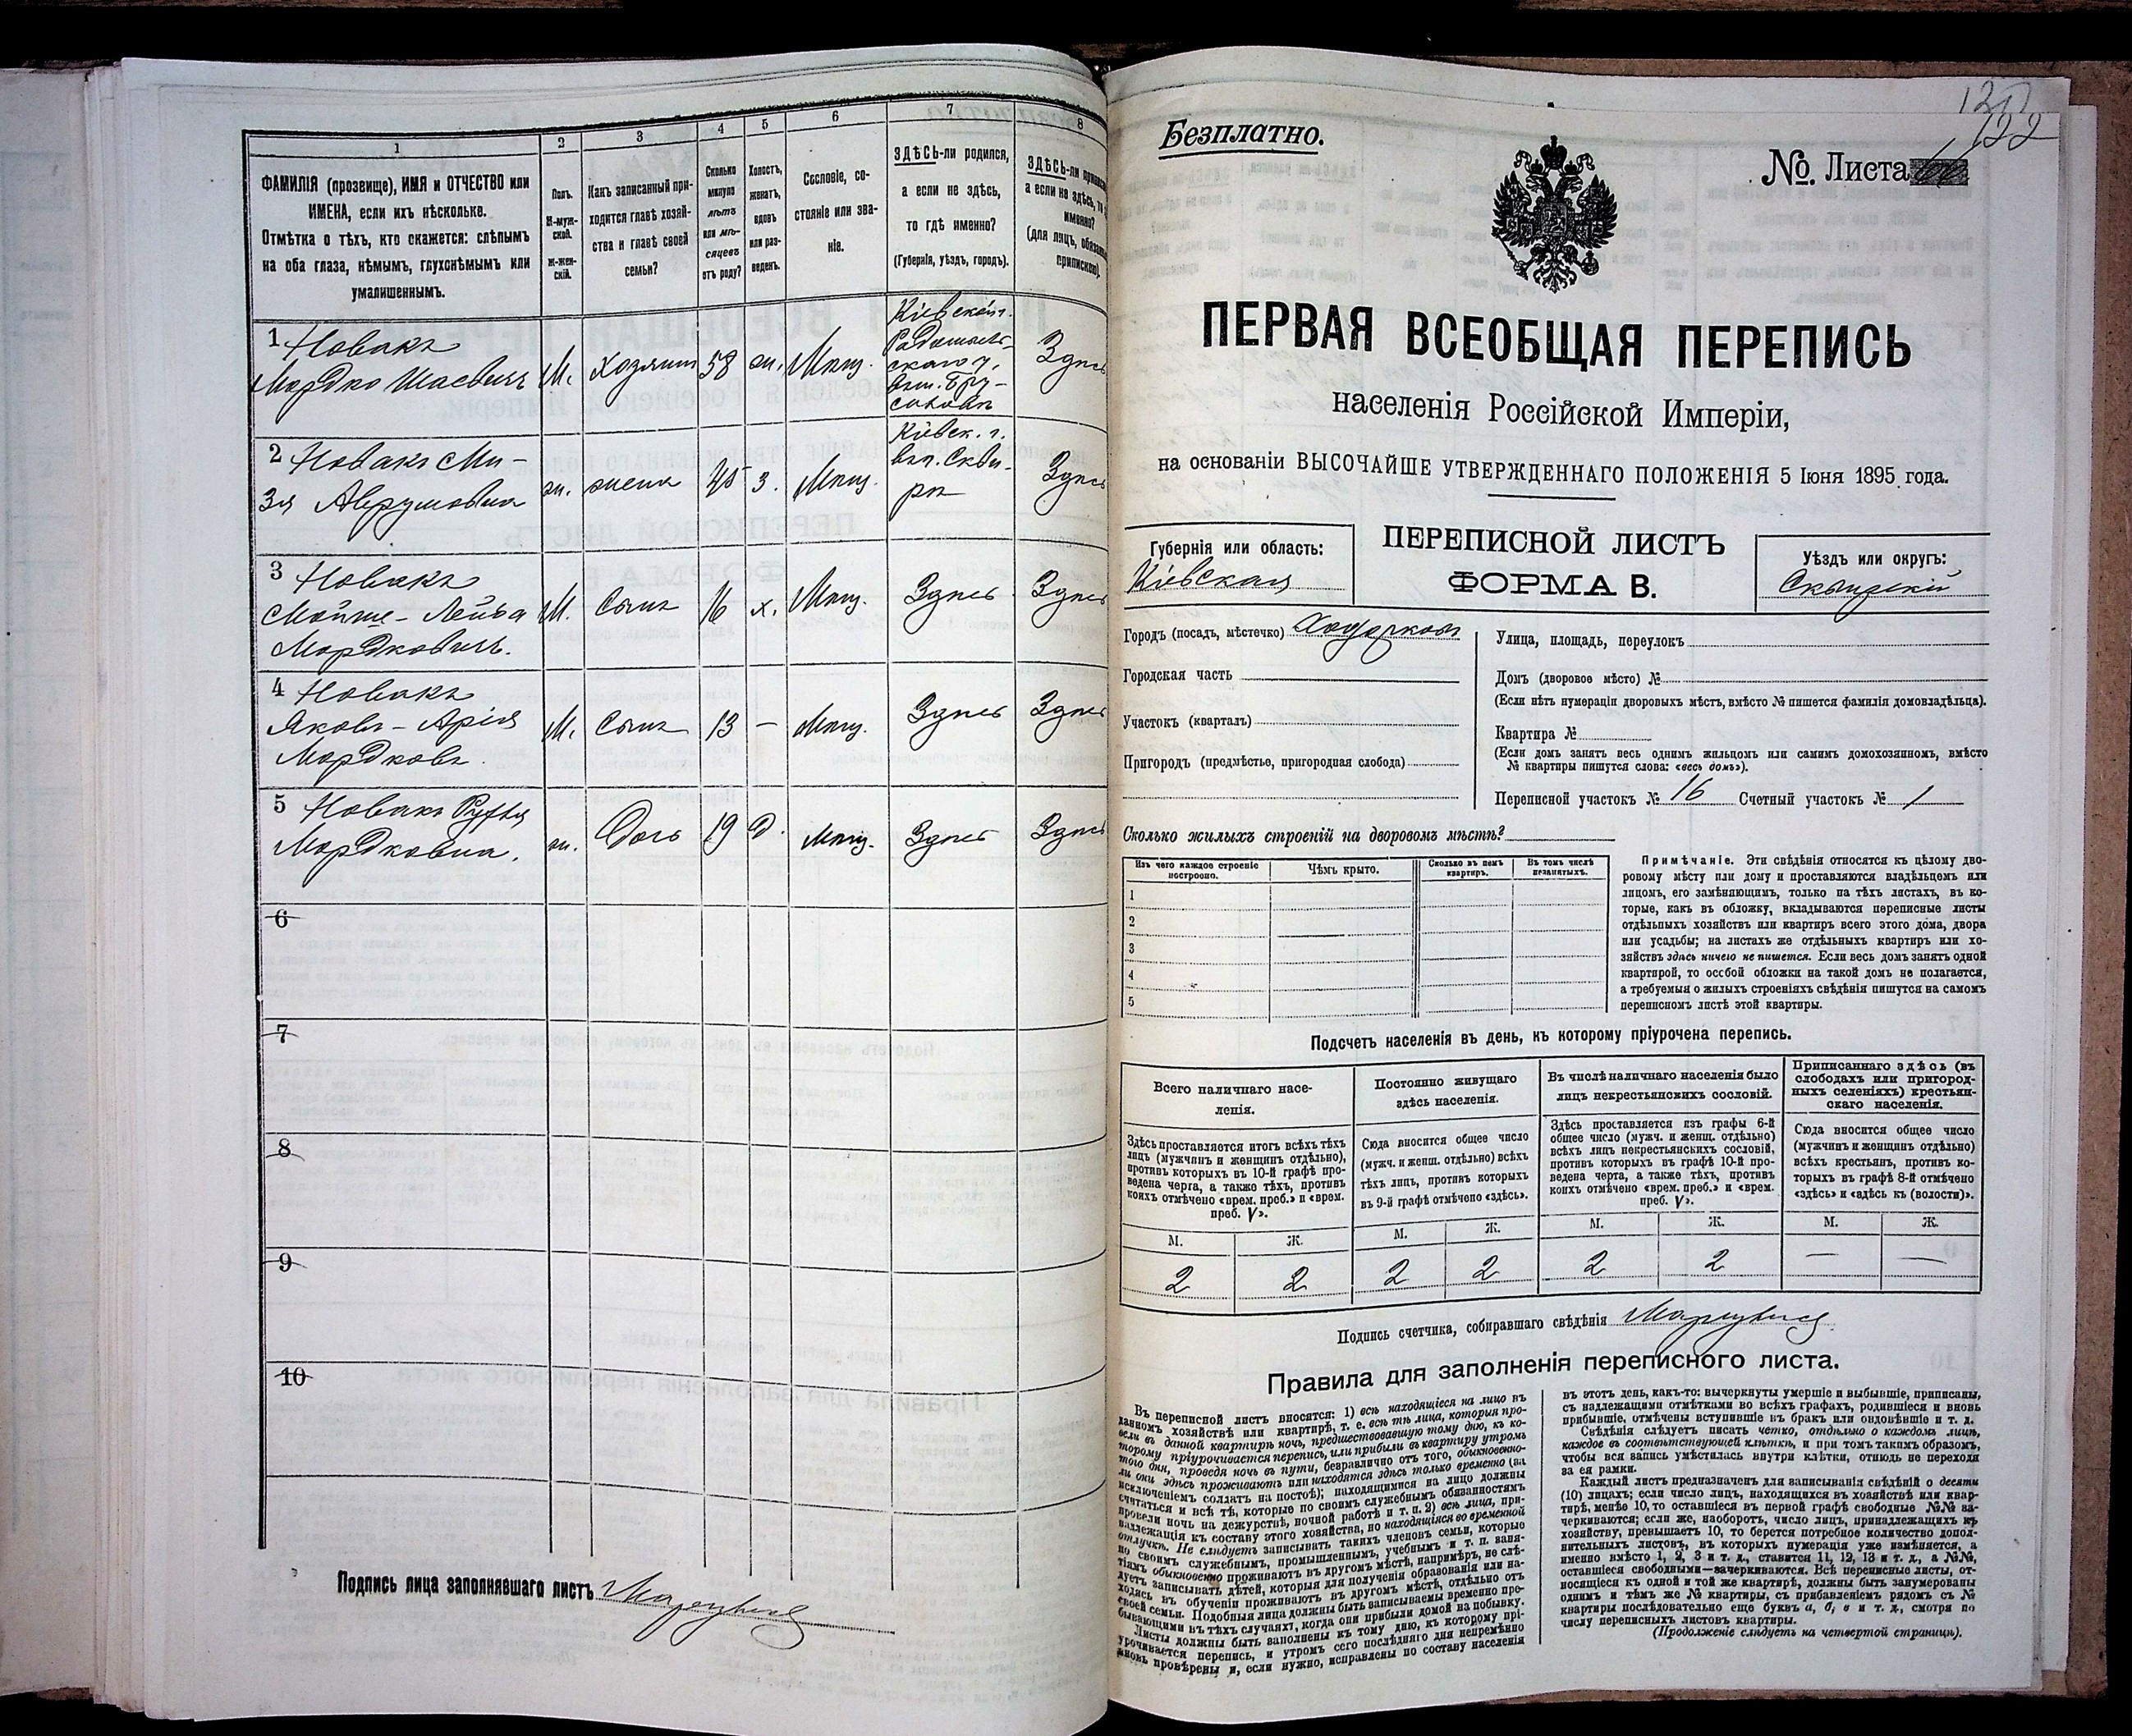 1
2
3
4
5
6
7
8
ФАМИЛІЯ (прозвище), ИМЯ и ОТЧЕСТВО или
ИМЕНА, если ихъ нѣсколько.
Отмѣтка о тѣхъ, кто окажется: слѣпымъ
на оба глаза, нѣмымъ, глухонѣмымъ или
умалишеннымъ.
Полъ.
М-муж-
ской.
Ж-жен-
скій.
Какъ записанный при-
ходится главѣ хозяй-
ства и главѣ своей
семьи?
Сколько
минуло
лѣтъ
или мѣ-
сяцевъ
отъ роду?
Холостъ,
женатъ,
вдовъ
или раз-
веденъ.
Сословіе, со-
стояніе или зва-
ніе.
ЗДѢСЬ-ли родился,
а если не здѣсь,
то гдѣ именно?
(Губернія, уѣздъ, городъ).
ЗДѢСЬ-ли
а если не здѣсь, то
именно?
(для лицъ,
припискою).
1 Новакъ
Мордко Шаевичъ
М.
хозяинъ
58
ж.
Мѣщ.
Кіевской г.
Радомысль-
скаго у.
въ м. Бру-
силовѣ
Здѣсь
2 Новакъ Ми-
зя Аврумовна
ж.
жена
45
з.
Мѣщ.
Кіевск. г.
въ г. Скви-
рѣ
Здѣсь
3 Новакъ
Мойше-Лейба
Мордковичъ.
М.
Сынъ
16
х.
Мѣщ.
Здѣсь
Здѣсь
4 Новакъ
Яковъ-Арія
Мордковъ
М.
Сынъ
13
—
Мѣщ.
Здѣсь
Здѣсь
5 Новакъ Руфля
Мордковна.
ж.
Дочь
19
д.
Мѣщ.
Здѣсь
Здѣсь
6
7
8
9
10
Подпись лица заполнявшаго листъ
Безплатно.
122
№ Листа
ПЕРВАЯ ВСЕОБЩАЯ ПЕРЕПИСЬ
населенія Россійской Имперіи,
на основаніи ВЫСОЧАЙШЕ УТВЕРЖДЕННАГО ПОЛОЖЕНІЯ 5 Іюня 1895 года.
Губернія или область:
Кіевская
ПЕРЕПИСНОЙ ЛИСТЪ
ФОРМА В.
Уѣздъ или округъ:
Сквирскій
Городъ (посадъ, мѣстечко) Ходорковъ
Городская часть
Участокъ (кварталъ)
Пригородъ (предмѣстье, пригородная слобода)
Улица, площадь, переулокъ
Домъ (дворовое мѣсто) №
(Если нѣтъ нумераціи дворовыхъ мѣстъ, вмѣсто № пишется фамилія домовладѣльца).
Квартира №
(Если домъ занятъ весь однимъ жильцомъ или самимъ домохозяиномъ, вмѣсто
№ квартиры пишутся слова: «весь домъ»).
Переписной участокъ № 16 Счетный участокъ № 1
Сколько жилыхъ строеній на дворовомъ мѣстѣ?
Изъ чего каждое строеніе
построено.
Чѣмъ крыто.
Сколько въ немъ
квартиръ.
Въ томъ числѣ
незанятыхъ.
1
2
3
4
5
Примѣчаніе. Эти свѣдѣнія относятся къ цѣлому дво-
ровому мѣсту или дому и проставляются владѣльцемъ или
лицомъ, его замѣняющимъ, только на тѣхъ листахъ, въ ко-
торые, какъ въ обложку, вкладываются переписные листы
отдѣльныхъ хозяйствъ или квартиръ всего этого дома, двора
или усадьбы; на листахъ же отдѣльныхъ квартиръ или хо-
зяйствъ здѣсь ничего не пишется. Если весь домъ занятъ одной
квартирой, то особой обложки на такой домъ не полагается,
а требуемыя о жилыхъ строеніяхъ свѣдѣнія пишутся на самомъ
переписномъ листѣ этой квартиры.
Подсчетъ населенія въ день, къ которому пріурочена перепись.
Всего наличнаго насе-
ленія.
Постоянно живущаго
здѣсь населенія.
Въ числѣ наличнаго населенія было
лицъ некрестьянскихъ сословій.
Приписаннаго здѣсь (въ
слободахъ или пригород-
ныхъ селеніяхъ) крестьян-
скаго населенія.
Здѣсь проставляется итогъ всѣхъ тѣхъ
лицъ (мужчинъ и женщинъ отдѣльно),
противъ которыхъ въ 10-й графѣ про-
ведена черта, а также тѣхъ, противъ
коихъ отмѣчено «врем. преб.» и «врем.
преб. V».
Сюда вносится общее число
(мужч. и женщ. отдѣльно) всѣхъ
тѣхъ лицъ, противъ которыхъ
въ 9-й графѣ отмѣчено «здѣсь».
Здѣсь проставляется изъ графы 6-й
общее число (мужч. и женщ. отдѣльно)
всѣхъ лицъ некрестьянскихъ сословій,
противъ которыхъ въ графѣ 10-й про-
ведена черта, а также тѣхъ, противъ
коихъ отмѣчено «врем. преб.» и «врем.
преб. V».
Сюда вносится общее число
(мужчинъ и женщинъ отдѣльно)
всѣхъ крестьянъ, противъ ко-
торыхъ въ графѣ 8-й отмѣчено
«здѣсь» и «здѣсь къ (волости)».
М. Ж. М. Ж. М. Ж. М. Ж.
2 2 2 2 2 2 — —
Подпись счетчика, собиравшаго свѣдѣнія
Правила для заполненія переписного листа.
Въ переписной листъ вносятся: 1) всѣ находящіеся на лицо въ
данномъ хозяйствѣ или квартирѣ, т. е. всѣ тѣ лица, которыя про-
вели въ данной квартирѣ ночь, предшествовавшую тому дню, къ ко-
торому пріурочивается перепись, или прибыли въ квартиру утромъ
того дня, проведя ночь въ пути, безразлично отъ того, обыкновенно-
ли они здѣсь проживаютъ или находятся здѣсь только временно (за
исключеніемъ солдатъ на постоѣ); находящимися на лицо должны
считаться и всѣ тѣ, которые по своимъ служебнымъ обязанностямъ
провели ночь на дежурствѣ, ночной работѣ и т. п. 2) всѣ лица, при-
надлежащія къ составу этого хозяйства, но находящіяся во временной
отлучкѣ. Не слѣдуетъ записывать такихъ членовъ семьи, которые
по своимъ служебнымъ, промышленнымъ, учебнымъ и т. п. заня-
тіямъ обыкновенно проживаютъ въ другомъ мѣстѣ, напримѣръ, не слѣ-
дуетъ записывать дѣтей, которыя для полученія образованія или на-
ходясь въ обученіи проживаютъ въ другомъ мѣстѣ, отдѣльно отъ
своей семьи. Подобныя лица должны быть записываемы временно пре-
бывающими въ тѣхъ случаяхъ, когда они прибыли домой на побывку.
Листы должны быть заполнены къ тому дню, къ которому прі-
урочивается перепись, и утромъ сего послѣдняго дня непремѣнно
вновь провѣрены и, если нужно, исправлены по составу населенія
въ этотъ день, какъ-то: вычеркнуты умершіе и выбывшіе, приписаны,
съ надлежащими отмѣтками во всѣхъ графахъ, родившіеся и вновь
прибывшіе, отмѣчены вступившіе въ бракъ или овдовѣвшіе и т. д.
Свѣдѣнія слѣдуетъ писать четко, отдѣльно о каждомъ лицѣ,
каждое въ соотвѣтствующей клѣткѣ, и при томъ такимъ образомъ,
чтобы вся запись умѣстилась внутри клѣтки, отнюдь не переходя
за ея рамки.
Каждый листъ предназначенъ для записыванія свѣдѣній о десяти
(10) лицахъ; если число лицъ, находящихся въ хозяйствѣ или квар-
тирѣ, менѣе 10, то оставшіеся въ первой графѣ свободные №№ за-
черкиваются; если же, наоборотъ, число лицъ, принадлежащихъ къ
хозяйству, превышаетъ 10, то берется потребное количество допол-
нительныхъ листовъ, въ которыхъ нумерація уже измѣняется, а
именно вмѣсто 1, 2, 3 и т. д., ставится 11, 12, 13 и т. д., а №№,
оставшіеся свободными—зачеркиваются. Всѣ переписные листы, от-
носящіеся къ одной и той же квартирѣ, должны быть занумерованы
однимъ и тѣмъ же № квартиры, съ прибавленіемъ рядомъ съ №
квартиры послѣдовательно еще буквъ а, б, в и т. д., смотря по
числу переписныхъ листовъ квартиры.
(Продолженіе слѣдуетъ на четвертой страницѣ).